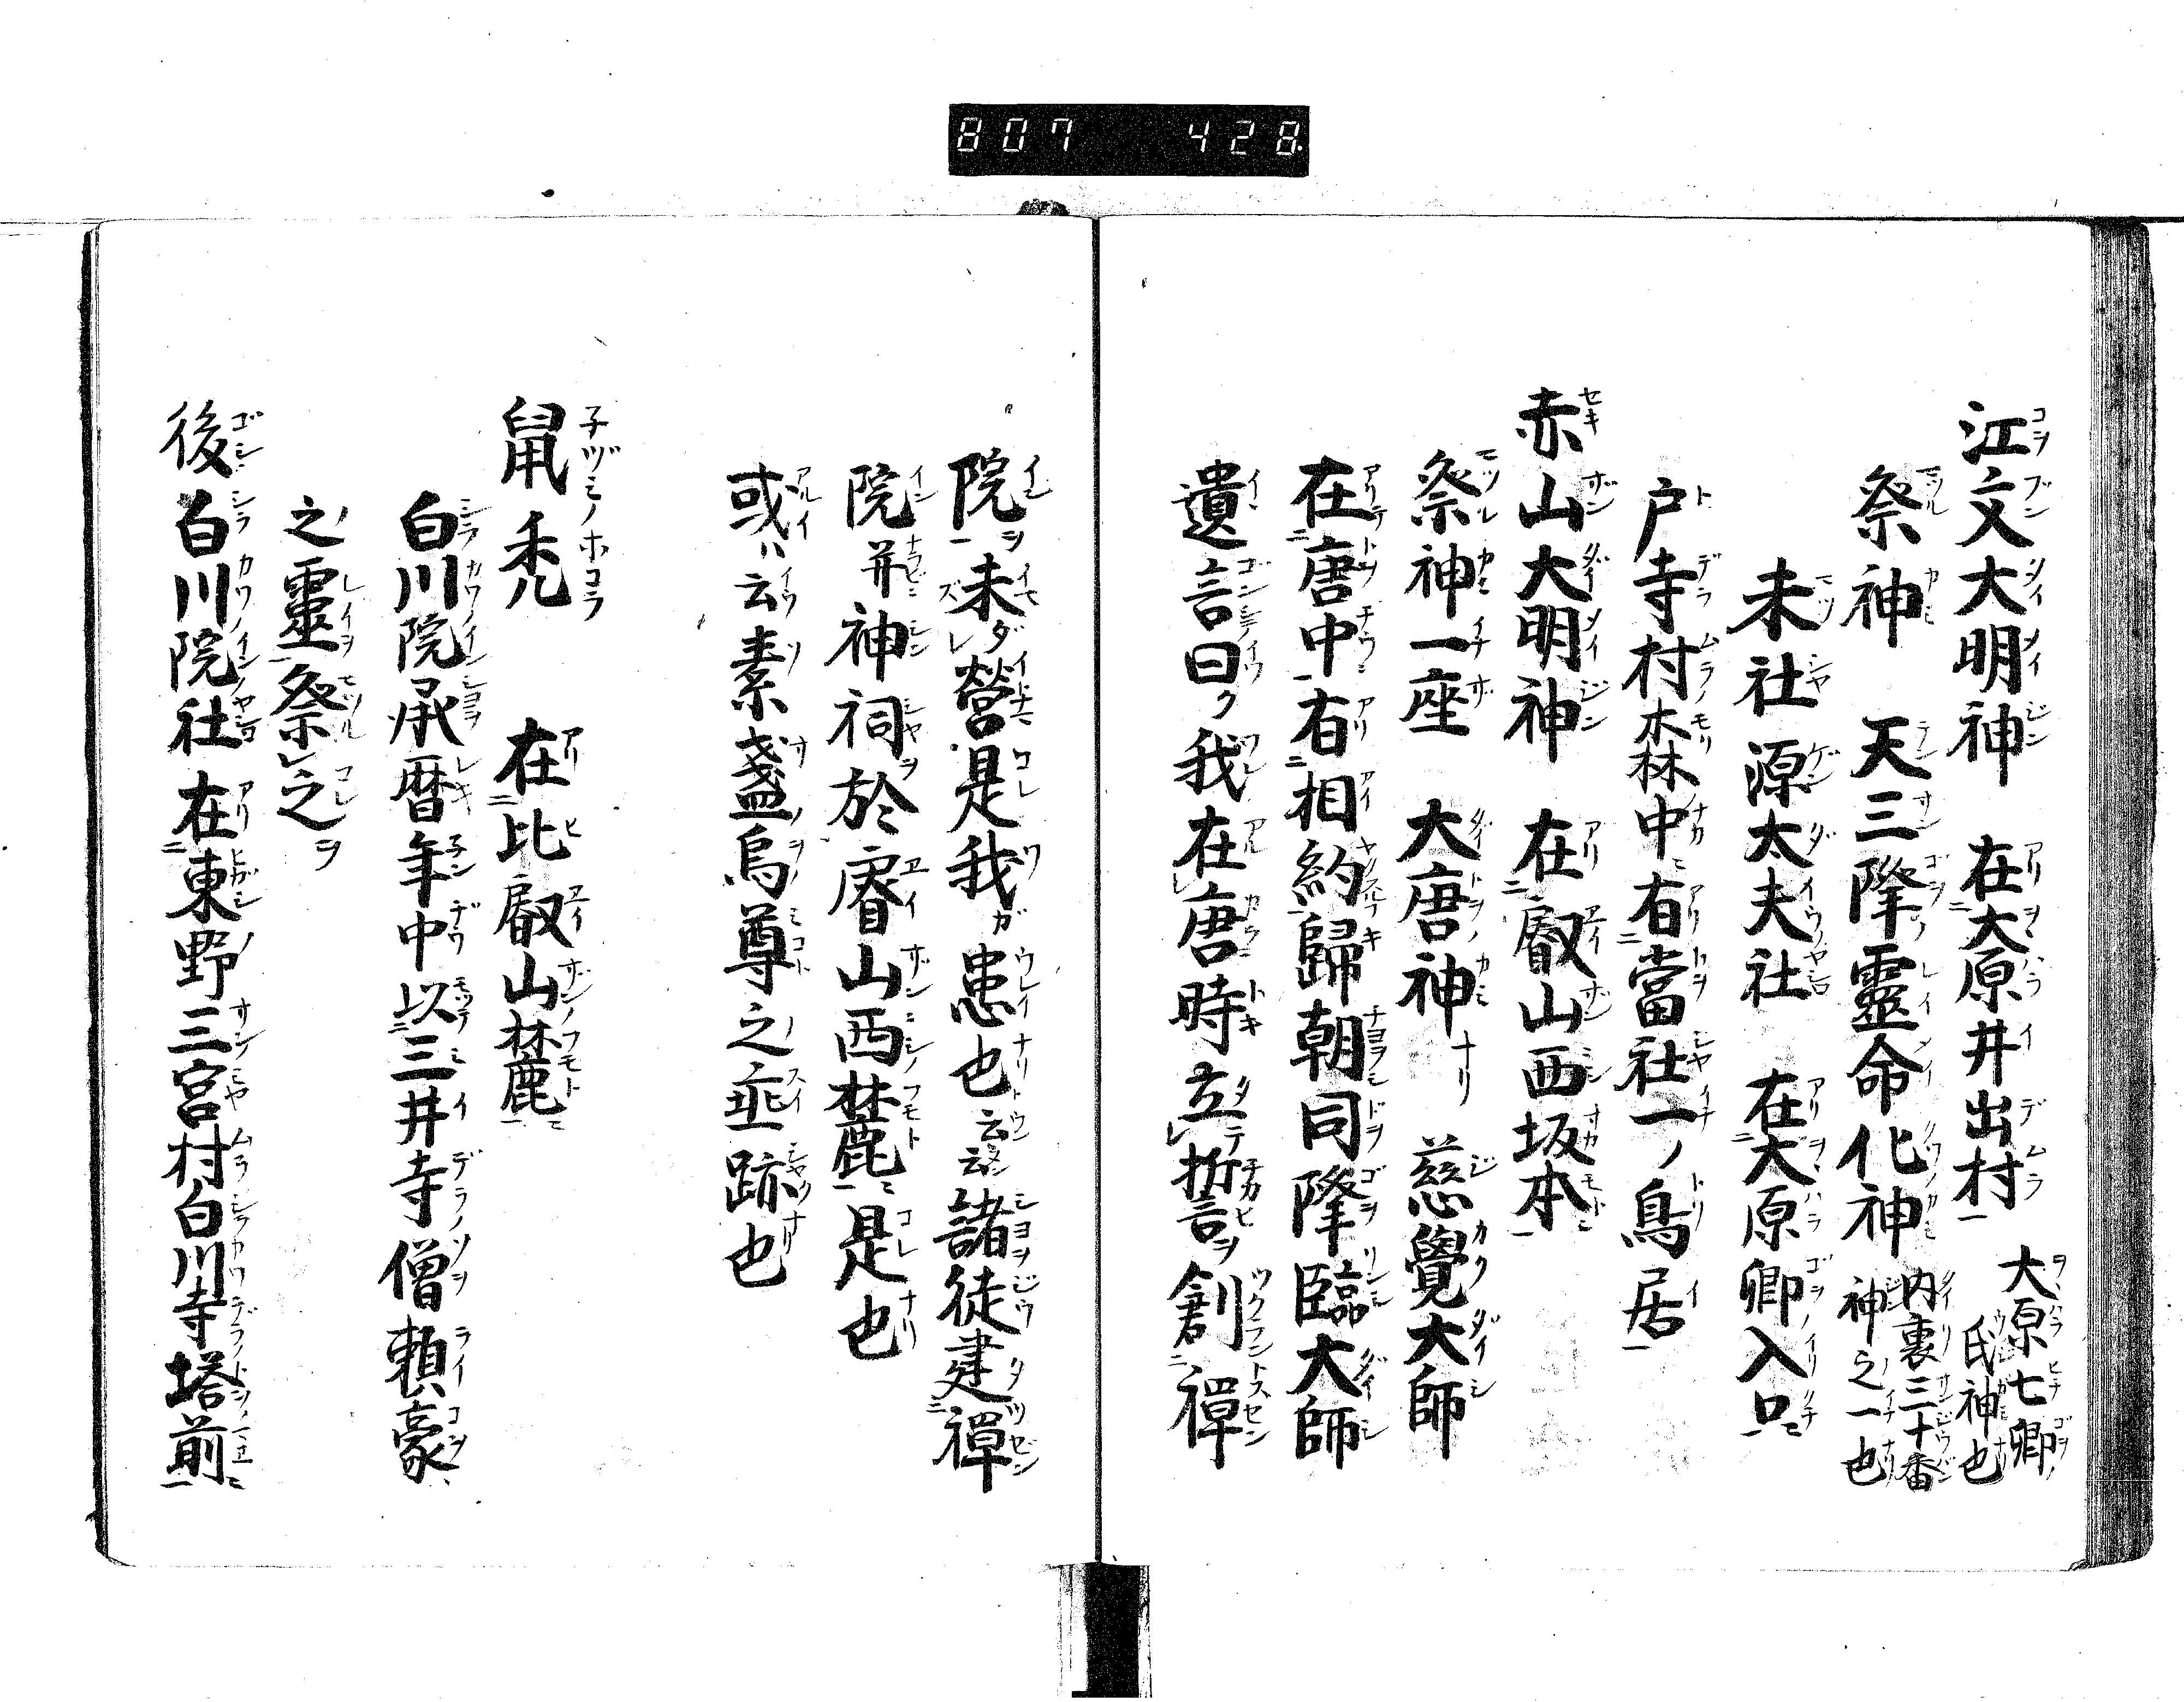 807 428
江文大明神 在大原井出村 大原七郷
氏神也
祭神 天三降靈命化神 内裏三十番
神之一也
末社 源太夫社 在大原郷入口
戸寺村森中有當社一ノ鳥居
赤山大明神 在叡山西坂本
祭神一座 大唐神ナリ 慈覺大師
在唐中有相約歸朝同降臨大師
遺言曰ク我在唐時立誓ヲ創禪
院ヲ未ダ營是我ガ患也云云諸徒建禪
院并神祠於睿山西麓是也
或ハ云素盞烏尊之垂跡也
鼠禿 在比叡山麓
白川院承暦年中以三井寺僧頼豪
之靈祭之ヲ
後白川院社 在東野三宮村白川寺塔前